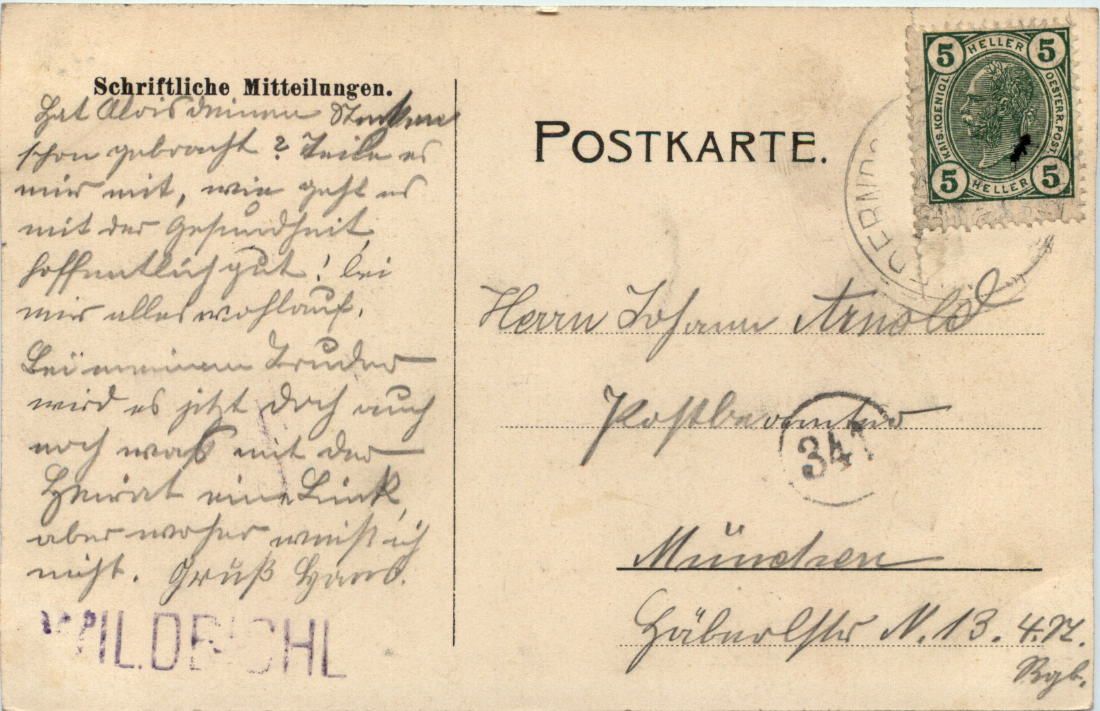 Schriftliche Mitteilungen.
Hat Alois deinen
schon gebracht? Teile es
mir mit, wie geht es
mit der Gesundheit,
hoffentlich gut! bei
mir alles wohlauf.
Bei meinem Bruder
wird es jetzt doch auch
noch was mit der
Heirat eine
aber woher weiß ich
nicht. Gruß Hans.
WILDB CHL
POSTKARTE.
5 HELLER 5
KAIS. KOENIGL.
OESTERR. POST.
5 HELLER 5
Herrn Johann Arnold
Postbeamter
341
München
Häberlstr N. 13. 4. St.
Rgb.